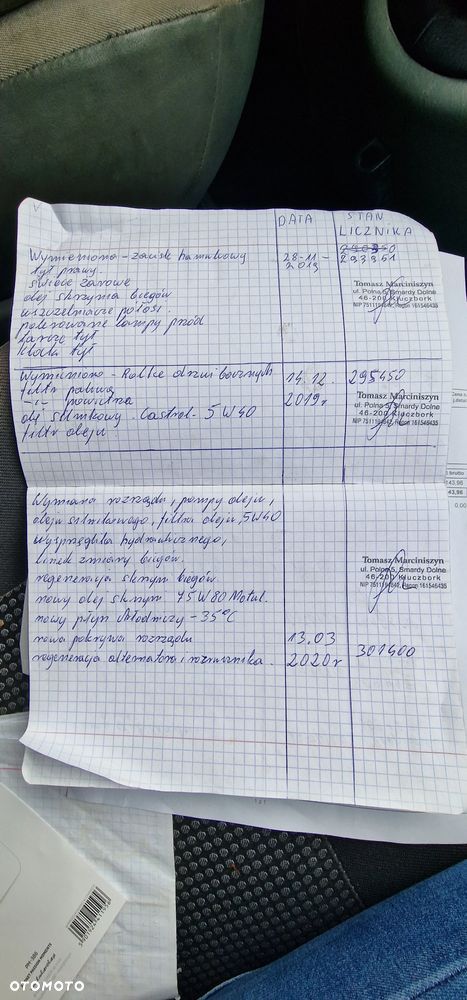 DATA
STAN
LICZNIKA
Wymieniono - zacisk hamulcowy
tył prawy.
28-11-
2019
293951
świece żarowe
olej skrzynia biegów
uszczelniacze półosi.
polerowane lampy przód
tarcze tył
klocki tył
Tomasz Marciniszyn
ul. Polna 5, Smardy Dolne
46-200 Kluczbork
Wymieniono - Rolke drzwi bocznych
14.12.
295450
filtr paliwa
-"- powietrza
2019r
olej silnikowy. Castrol. 5W40
filtr oleju
Tomasz Marciniszyn
ul. Polna 5, Smardy Dolne
46-200 Kluczbork
Wymiana rozrządu, pompy oleju,
oleju silnikowego, filtra oleju, 5W40
Wysprzęglika hydraulicznego,
linek zmiany biegów.
regeneracja skrzyni biegów
nowy olej skrzyn. 75W80 Motul.
nowy płyn chłodniczy -35°C
nowa pokrywa rozrządu
13.03
301400
regeneracja alternatora i rozrusznika.
2020r
Tomasz Marciniszyn
ul. Polna 5, Smardy Dolne
46-200 Kluczbork
OTOMOTO